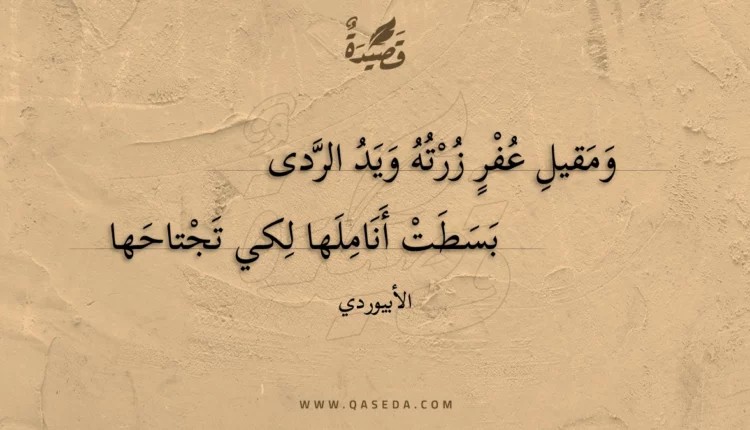 قَصِيْدَةٌ
وَمَقيلِ عُفْرٍ زُرْتُهُ وَيَدُ الرَّدى
بَسَطَتْ أَنَامِلَها لِكي تَجْتاحَها
الأبيوردي
WWW.QASEDA.COM